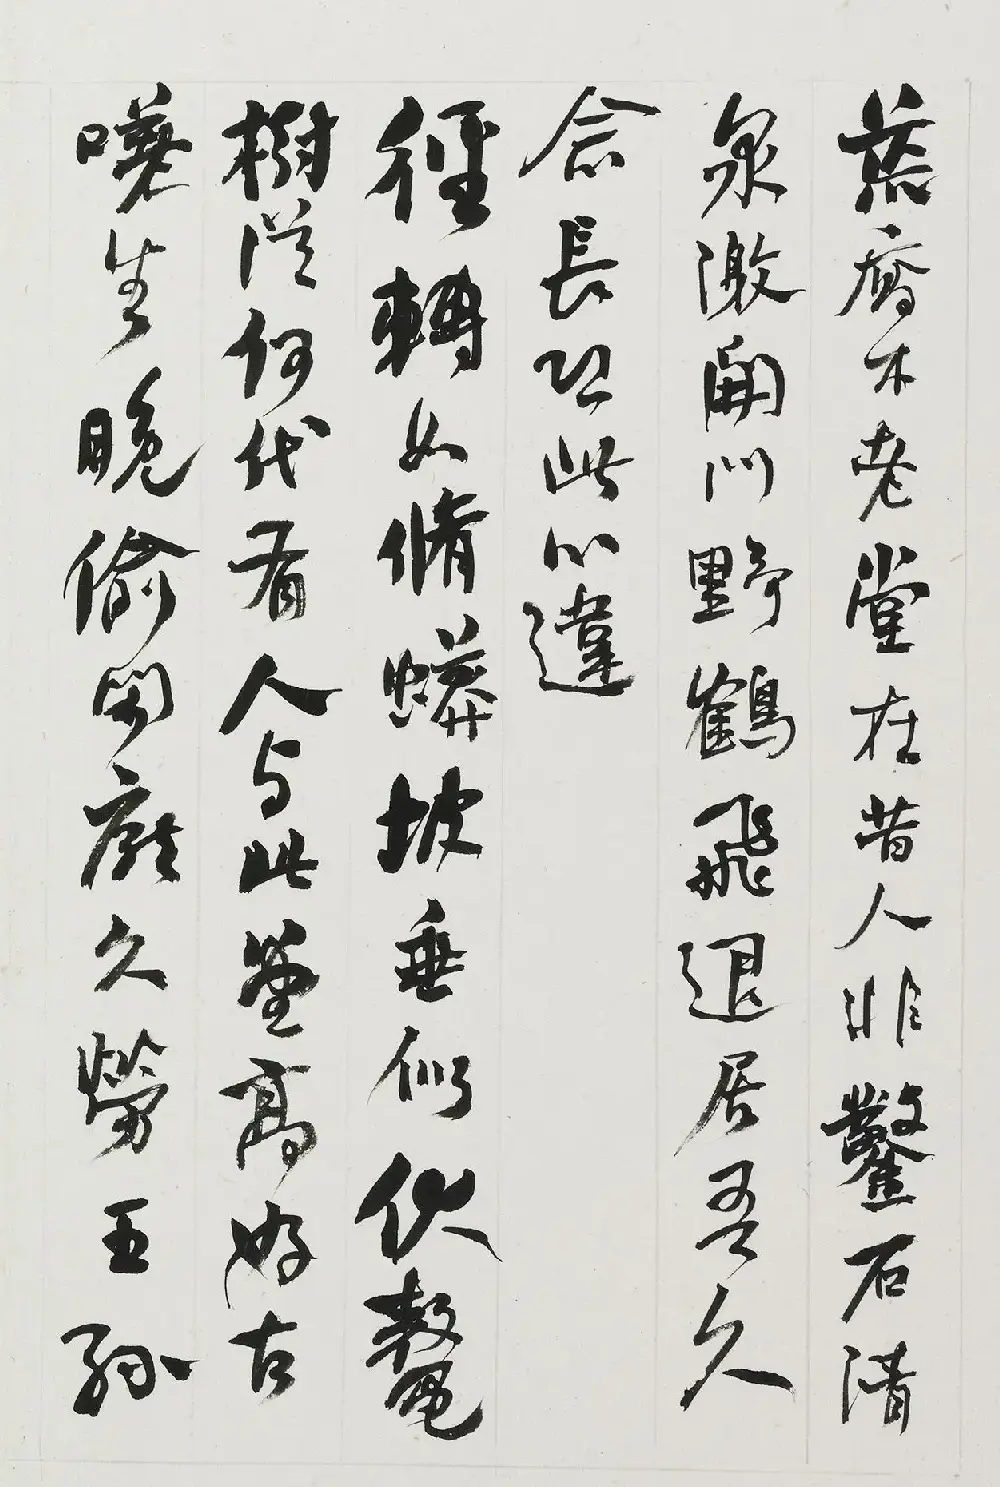 喬木老堂在昔人非鑿石清
泉激開門野鶴飛退居吾久
念長恐此心違
徑轉如脩蟒坡垂似伏鼇
樹從何代有人与此堂高好古
嗟生晚偷閑厭久勞王孫